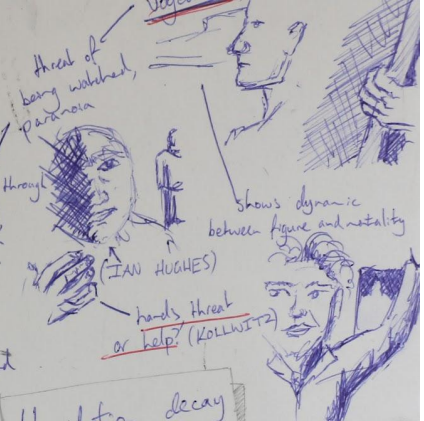 threat of
being watched,
paranoia
through
shows dynamic
between figure and mortality
(IAN HUGHES)
hands threat
or help? (KOLLWITZ)
decay